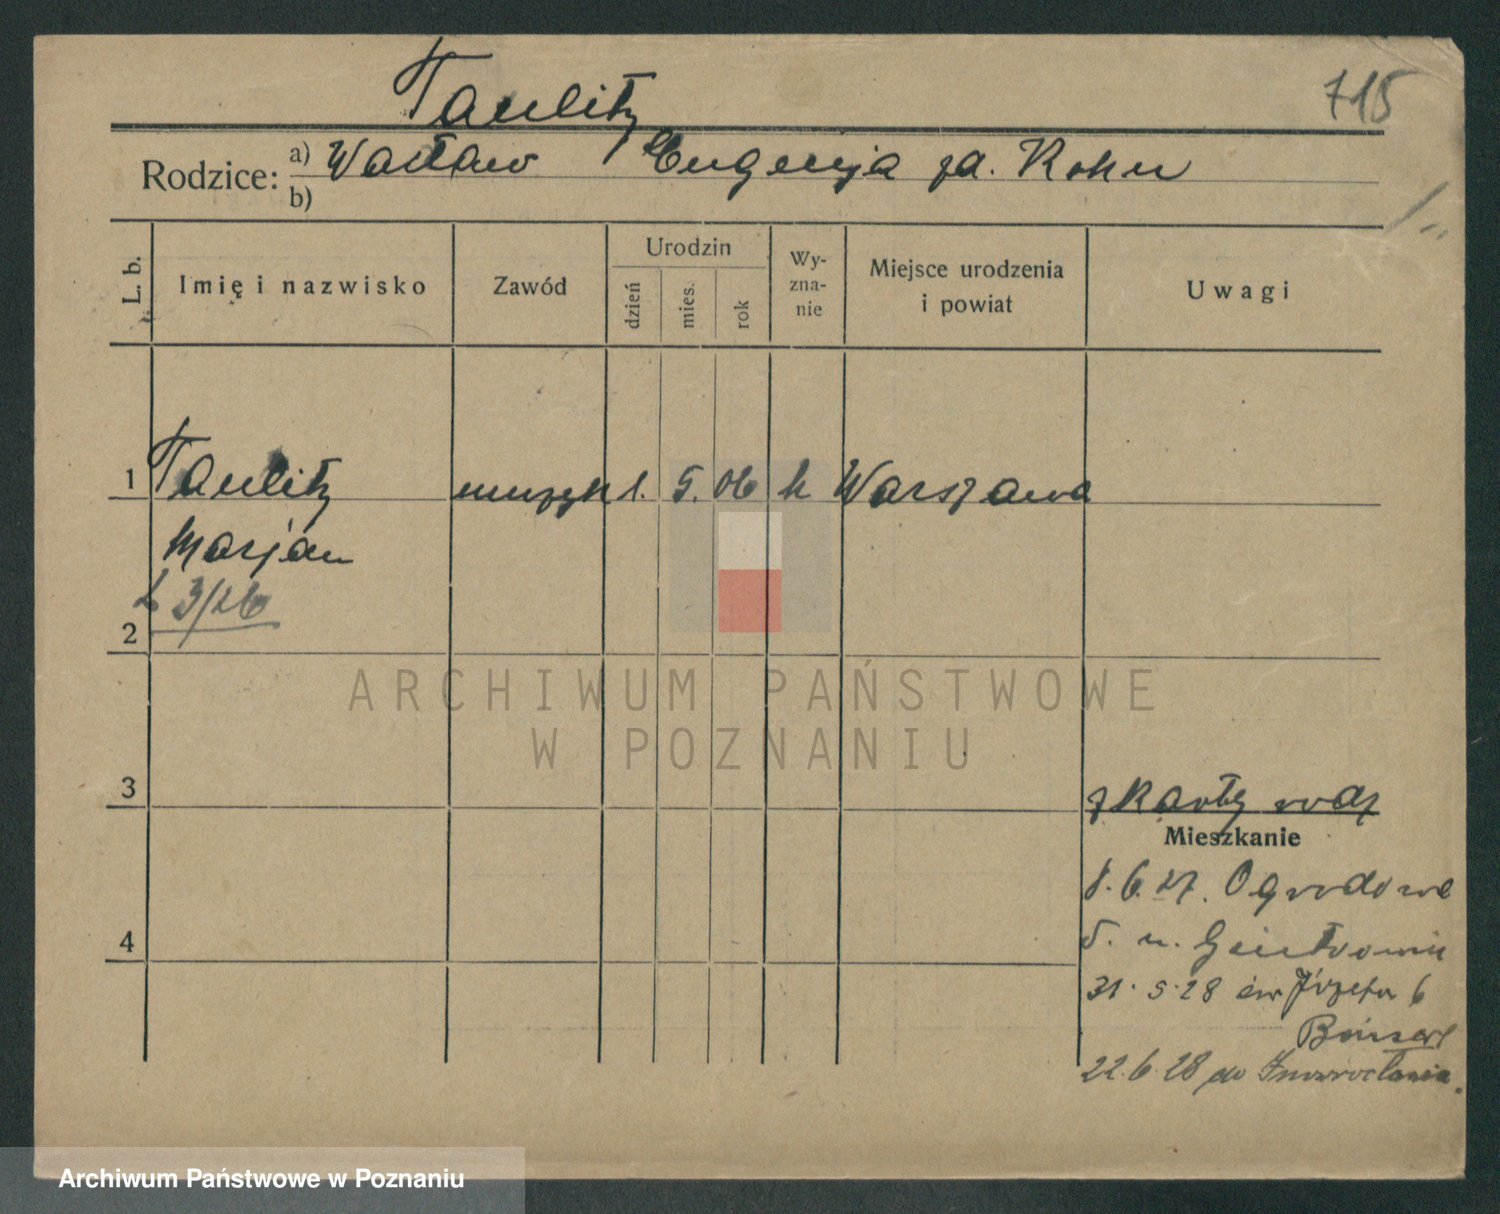 715
Taulitz
Rodzice: a) Wacław Eugenja za. Kohn
b)
L. b. Imię i nazwisko Zawód Urodzin dzień mies. rok Wy-zna-nie Miejsce urodzenia i powiat Uwagi
1 Taulitz muzyk 1. 5. 06 k Warszawa
Marjan
3/26
2
3
z Karty rodz
Mieszkanie
8.6.27. Ogrodowa
4
5. u.
31.5.28 św Józefa 6
22.6.28 do Inowrocławia.
ARCHIWUM PAŃSTWOWE
W POZNANIU
Archiwum Państwowe w Poznaniu